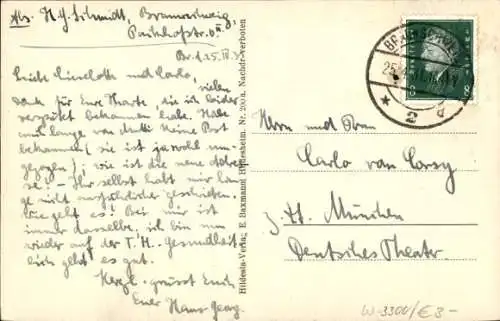 Abs. H. G. Schmidt, Braunschweig,
Parkhofstr. 6II
Br. d. 25.IV.3
Liebe Lieselotte und Carlo, vielen
Dank für Eure Karte, die ich leider
verspätet bekommen habe. Habe
lange von keine Post
bekommen (sie ist ja wohl um-
gezogen); wie ist die neue Adres-
se? – Ihr selbst habt mir lan-
ge nicht ausführlicher geschrieben.
Wie geht es? Bei mir ist
immer dasselbe, ich bin nun
wieder auf der T.H. Gesundheit-
lich geht es gut.
Herzl. grüsst Euch
Euer Hans-Georg
Hildesia-Verlag, E. Baxmann, Hildesheim. Nr. 200a. Nachdr. verboten
BRAUNSCHWEIG
25.
* 2 d
8 8
Herrn und Frau
Carlo van Corsy
München
Deutsches Theater
W-3300/€3-